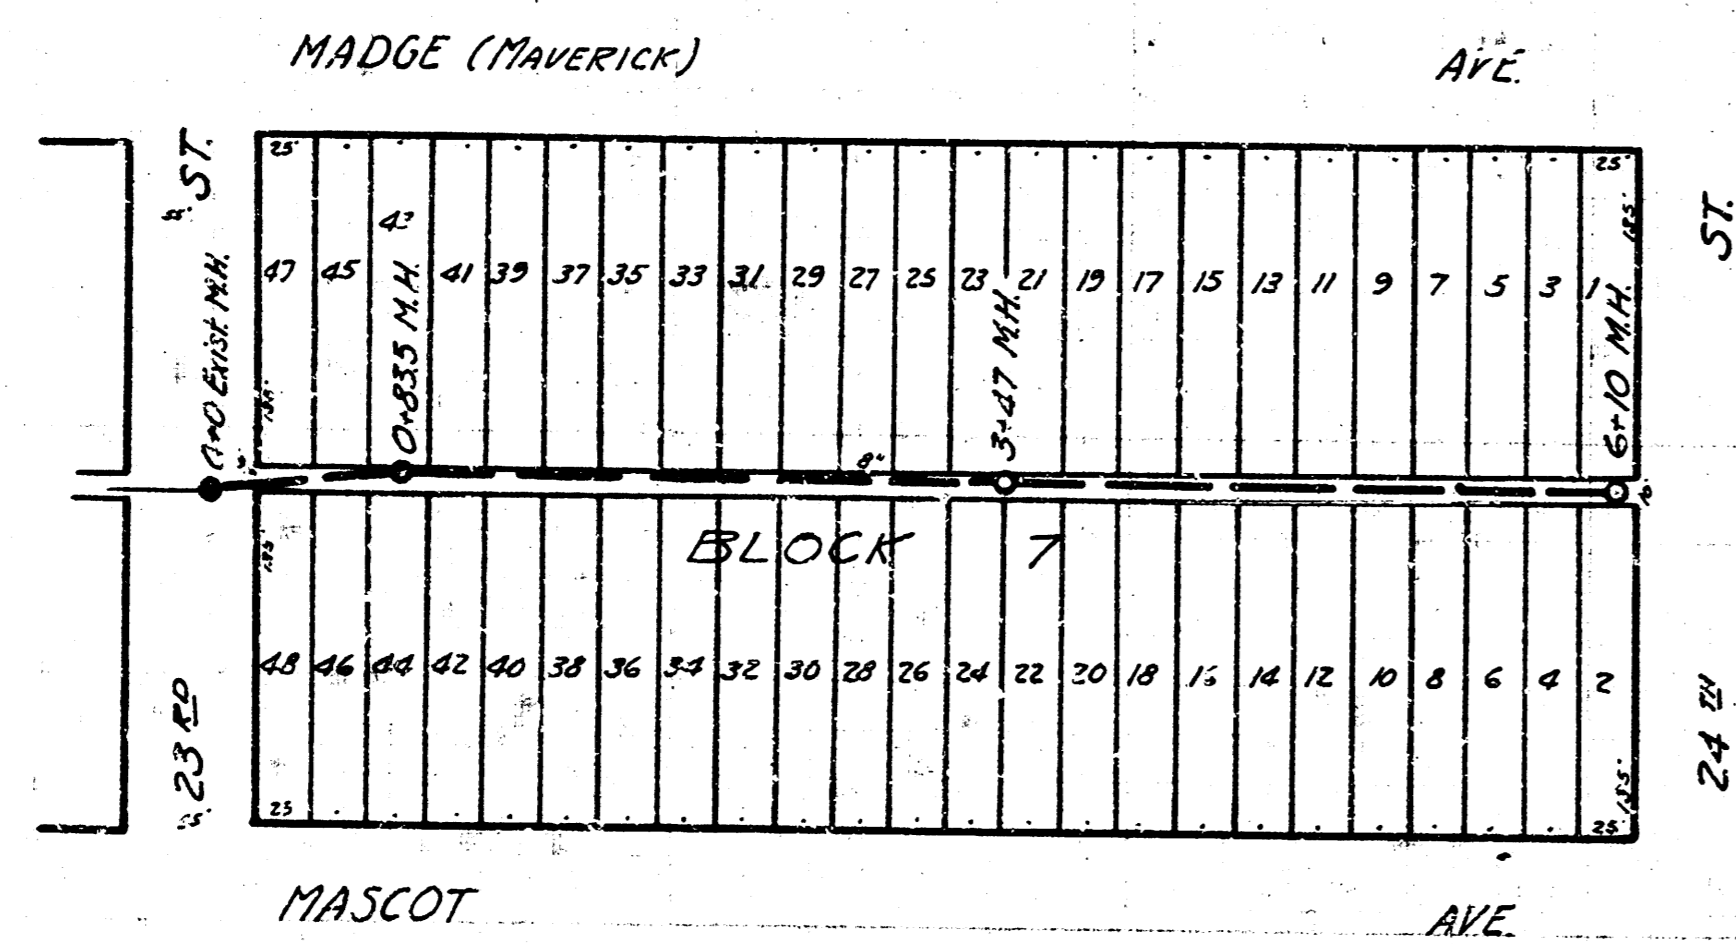 MADGE (MAVERICK) AVE.
ST. ST.
25' 25'
47 45 43 41 39 37 35 33 31 29 27 25 23 21 19 17 15 13 11 9 7 5 3 1
0+0 EXIST. M.H.
0+83.5 M.H.
3+47 M.H.
6+10 M.H.
8"
BLOCK 7
48 46 44 42 40 38 36 34 32 30 28 26 24 22 20 18 16 14 12 10 8 6 4 2
23 RD
24 TH
25 25'
MASCOT AVE.